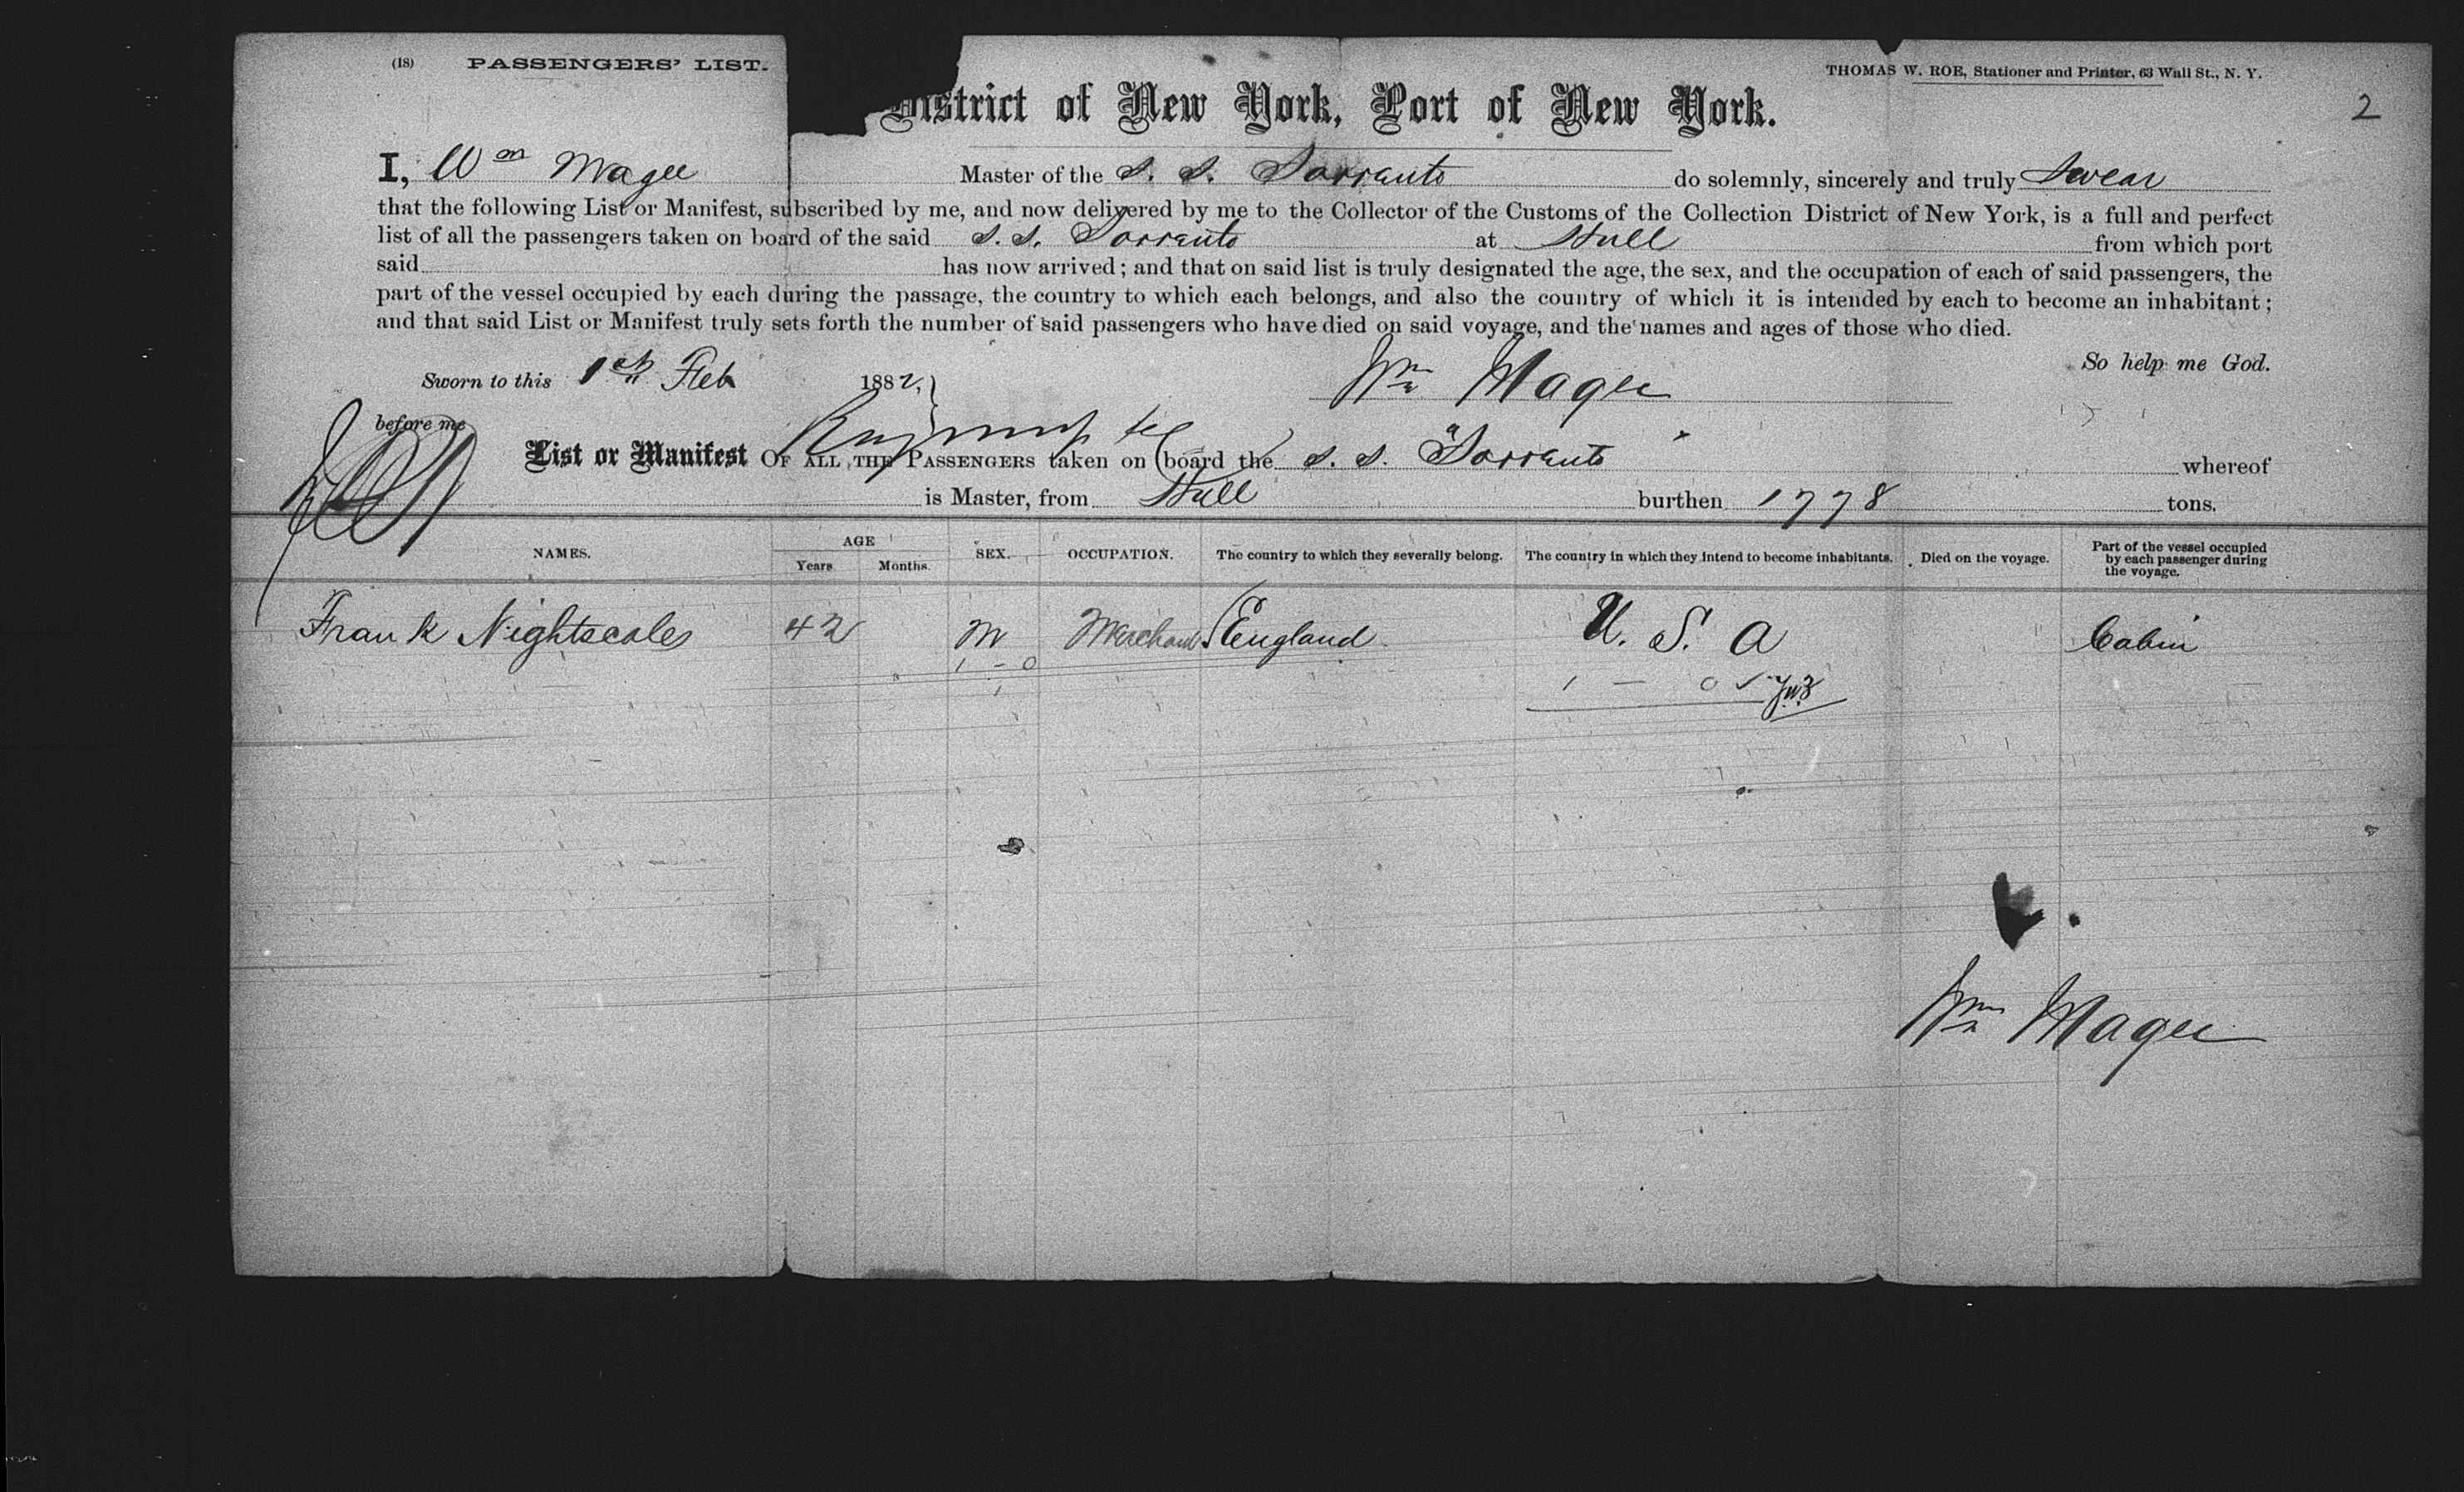 (18) PASSENGERS' LIST.
THOMAS W. ROE, Stationer and Printer, 63 Wall St., N. Y.
District of New York, Port of New York.
2
I, Wm Magee Master of the S. S. Sorrento do solemnly, sincerely and truly Swear
that the following List or Manifest, subscribed by me, and now delivered by me to the Collector of the Customs of the Collection District of New York, is a full and perfect
list of all the passengers taken on board of the said S. S. Sorrento at Hull from which port
said has now arrived; and that on said list is truly designated the age, the sex, and the occupation of each of said passengers, the
part of the vessel occupied by each during the passage, the country to which each belongs, and also the country of which it is intended by each to become an inhabitant;
and that said List or Manifest truly sets forth the number of said passengers who have died on said voyage, and the names and ages of those who died.
So help me God.
Sworn to this 1st Feb 1882, Wm Magee
before me
List or Manifest OF ALL THE PASSENGERS taken on board the S. S. "Sorrento" whereof
is Master, from Hull burthen 1778 tons.
NAMES. AGE Years Months. SEX. OCCUPATION. The country to which they severally belong. The country in which they intend to become inhabitants. Died on the voyage. Part of the vessel occupied by each passenger during the voyage.
Frank Nightscales 42 M Merchant England U. S. A Cabin
1 - 0 1 - 0 ✓
1
Wm Magee